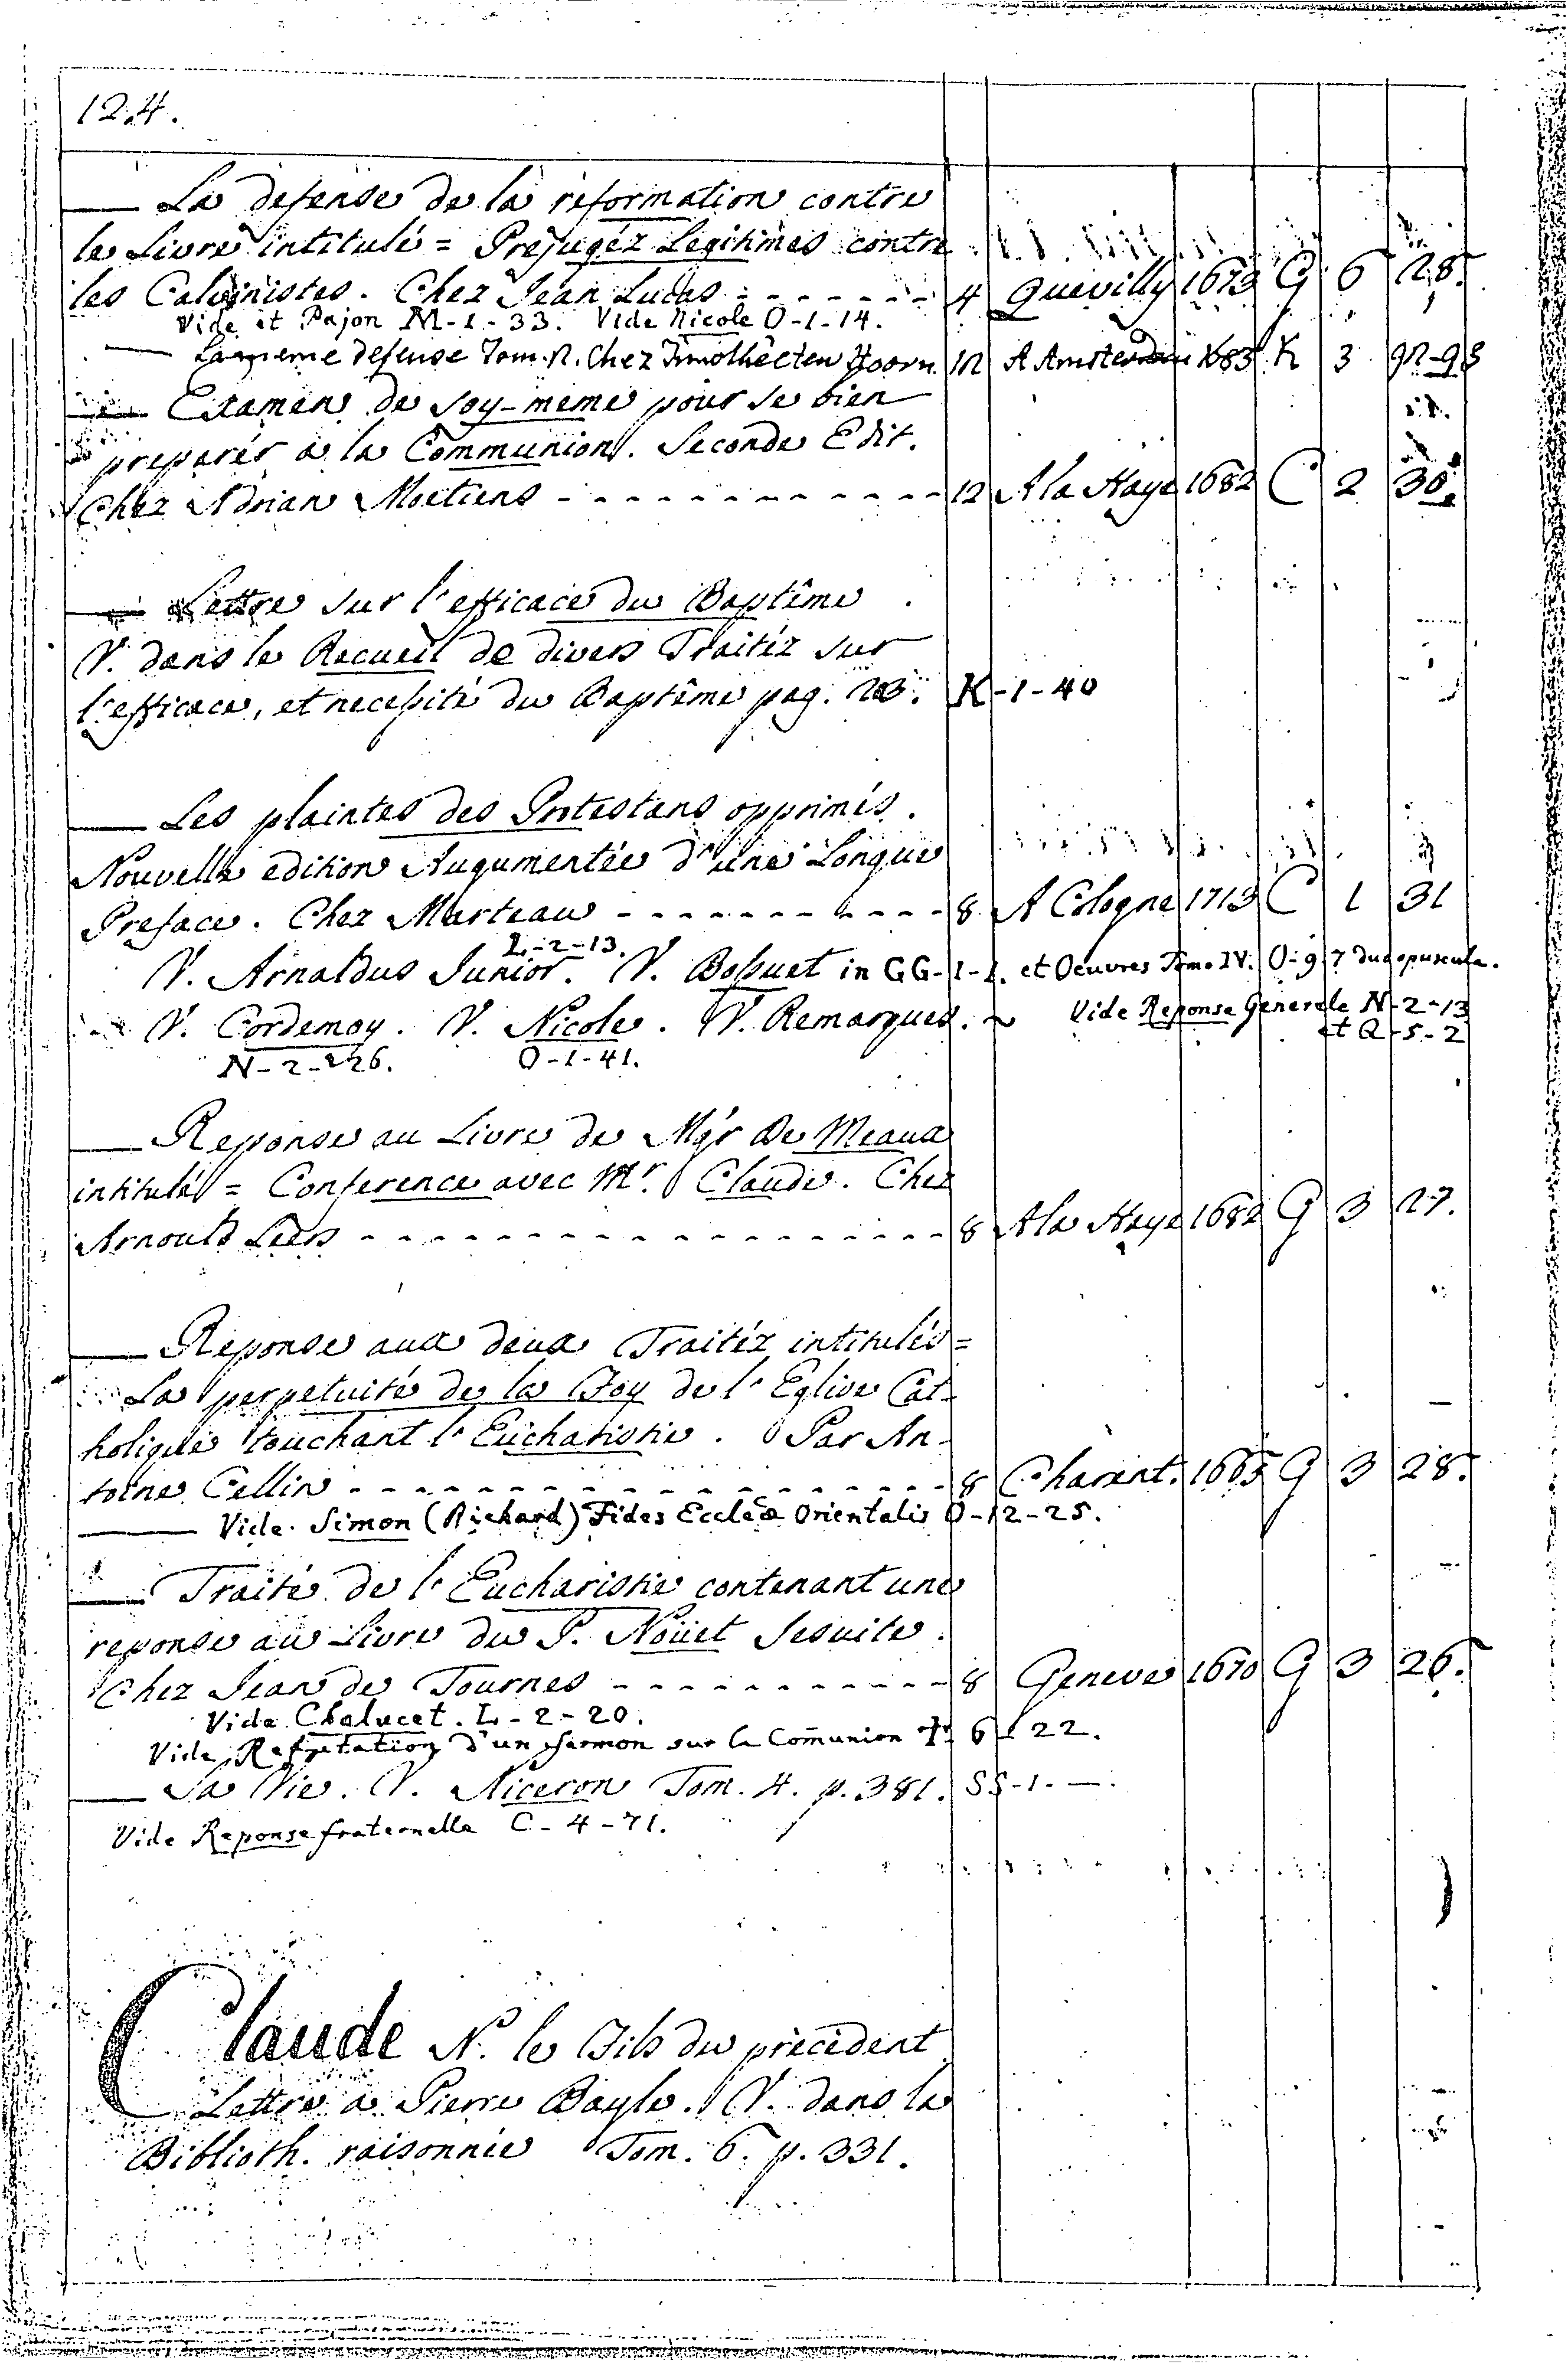 124.
— La defense de la reformation contre
le Livre intitulé = Prejugéz Legitimes contre
les Calvinistes. Chez Jean Lucas - - - - - - - 4 Quevilly 1673 G 6 28.
Vide et Pajon M-1-33. Vide Nicole O-1-14.
— La meme defense Tom. 2. Chez Timothée ten Hoorn. 12 A Amsterdam 1683 K 3 92-93
— Examen de soy-meme pour se bien
preparér a la Communion. Seconde Edit.
Chez Adrian Moetiens - - - - - - - - - - - - 12 A la Haye 1682 C 2 30.
— Lettre sur l'efficace du Baptême.
V. dans le Recueil de divers Traitéz sur
l'efficace, et necessité du Baptême pag. K-1-40
— Les plaintes des Protestans opprimés.
Nouvelle edition Augumentée d'une Longue
Preface. Chez Marteau - - - - - - - - - - - 8 A Cologne 1713 C 1 31
L-2-13.
V. Arnaldus Junior. V. Bossuet in GG-1-1. et Oeuvres Tom. IV. O-9 7 du opuscula.
V. Cordemoy. V. Nicole. V. Remarques. Vide Reponse Generale N-2-13
et Q-5-2
N-2-26. O-1-41.
— Reponse au Livre de Mgr De Meaux
intitulé = Conference avec Mr. Claude. Chez
Arnout Leers - - - - - - - - - - - - - - - - - - 8 A la Haye 1682 G 3 27.
— Reponse aux deux Traitéz intitulés =
La perpetuité de la Foy de l'Eglise Cat-
holique touchant l'Eucharistie. Par An-
toine Cellier - - - - - - - - - - - - - - - - - 8 Charent. 1665 G 3 28.
— Vide Simon (Richard) Fides Eccleæ Orientalis O-12-25.
— Traité de l'Eucharistie contenant une
reponse au Livre du P. Noüet Jesuite.
Chez Jean de Tournes - - - - - - - - - - - 8 Geneve 1670 G 3 26.
Vide Chalucet. L-2-20.
Vide Refutation d'un sermon sur la Comunion 6 22.
— Sa Vie. V. Niceron Tom. 4. p. 381. SS-1. —.
Vide Reponse fraternelle C-4-71.
Claude N. le Fils du precedent
Lettre a Pierre Bayle. V. dans la
Biblioth. raisonnée Tom. 6. p. 331.